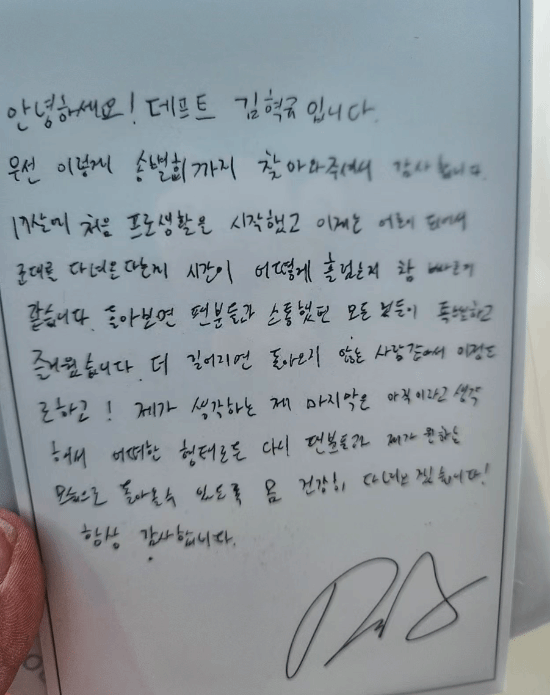 안녕하세요! 데프트 김혁규입니다.
우선 이렇게 송별회까지 찾아와주셔서 감사합니다.
17살에 처음 프로생활을 시작했고 이제는 어른이 되어서
군대를 다녀온다는지 시간이 어떻게 흘렀는지 참 빠른거
같습니다. 돌아보면 팬분들과 소통했던 모든 날들이 특별하고
즐거웠습니다. 더 길어지면 돌아오지 않는 사람같아서 이정도
로하고! 제가 생각하는 제 마지막은 아직이라고 생각
해서 어떠한 형태로든 다시 팬분들과 제가 원하는
모습으로 돌아올수 있도록 몸 건강히 다녀오겠습니다!
항상 감사합니다.